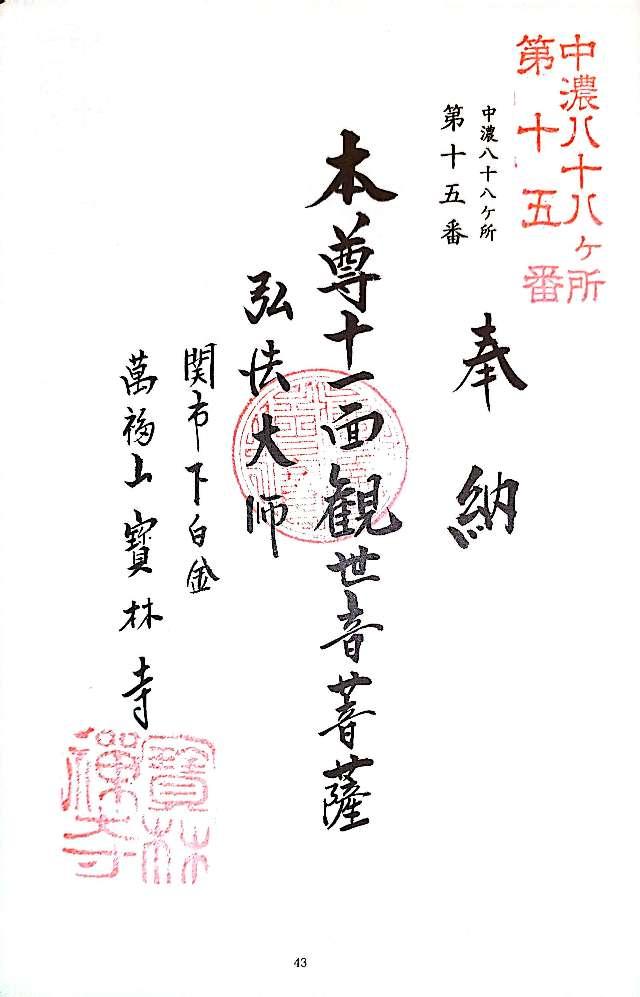 中濃八十八ヶ所
第十五番
中濃八十八ケ所
第十五番
奉納
本尊十一面観世音菩薩
弘法大師
関市下白金
萬福山寶林寺
寶林
禪寺
43